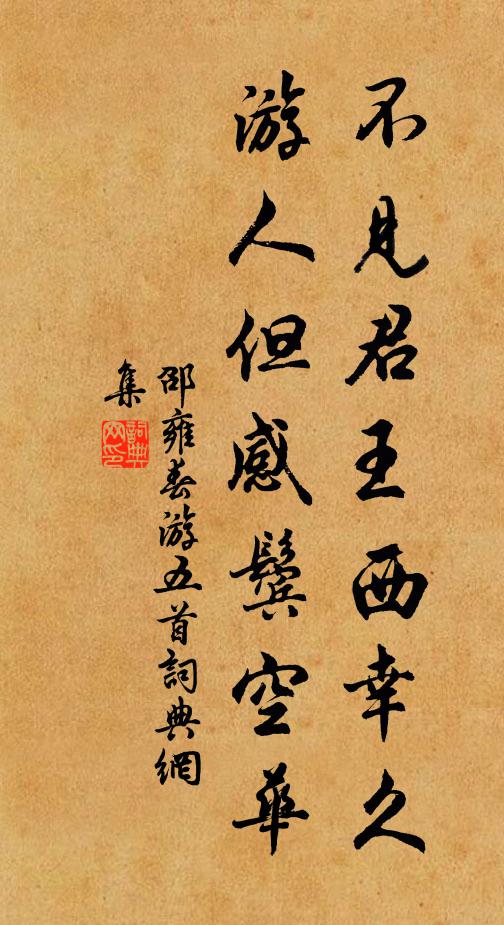 不見君王西幸久
游人但感鬢空華
邵雍春游五首詞典網
集
詞典網印